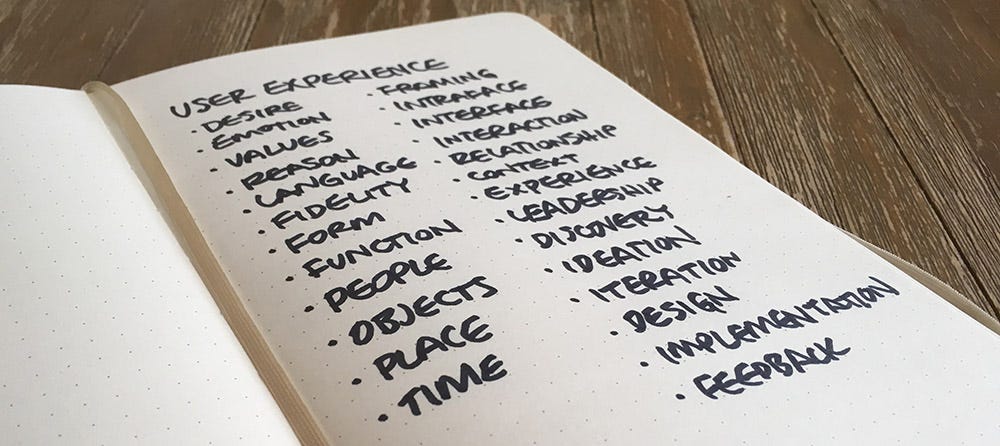 USER EXPERIENCE
• DESIRE
• EMOTION
• VALUES
• REASON
• LANGUAGE
• FIDELITY
• FORM
• FUNCTION
• PEOPLE
• OBJECTS
• PLACE
• TIME
• FRAMING
• INTRAFACE
• INTERFACE
• INTERACTION
• RELATIONSHIP
• CONTEXT
• EXPERIENCE
• LEADERSHIP
• DISCOVERY
• IDEATION
• ITERATION
• DESIGN
• IMPLEMENTATION
• FEEDBACK